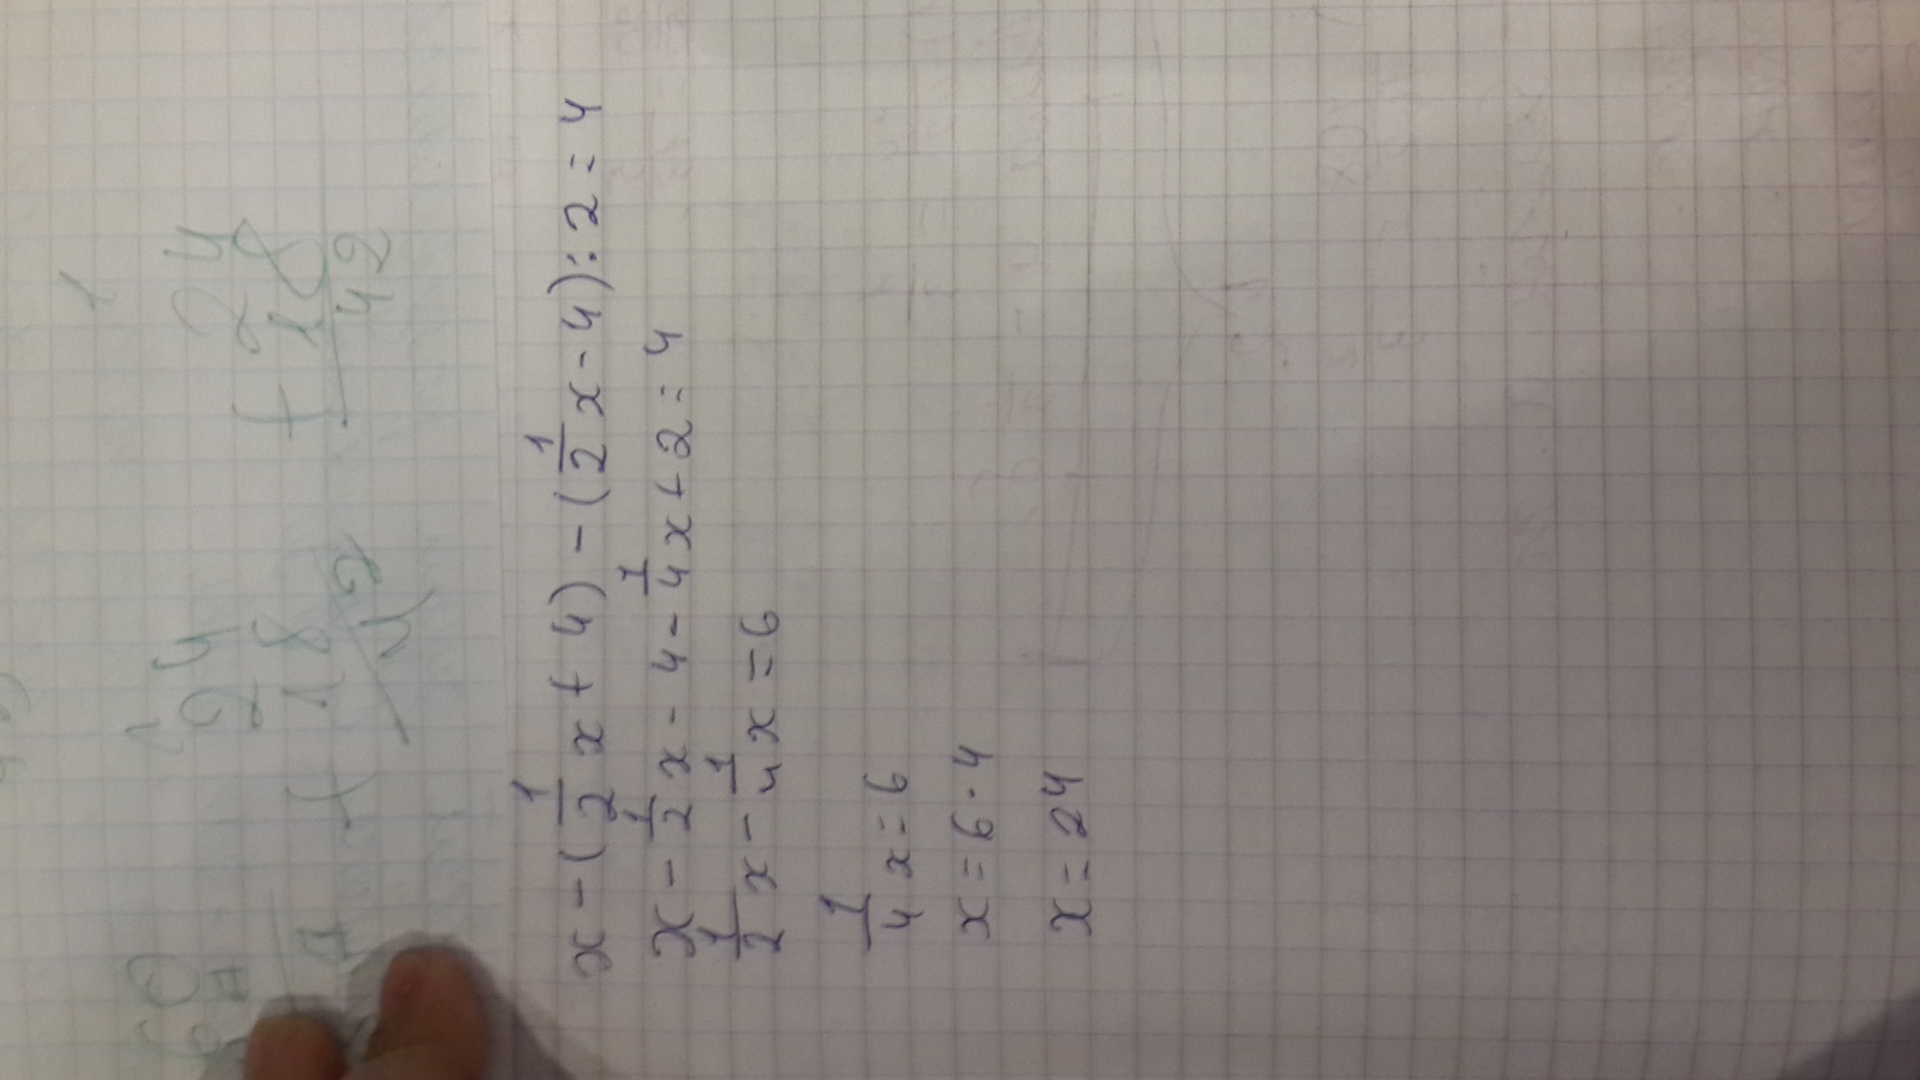 x - (1/2 x + 4) - (1/2 x - 4) : 2 = 4
x - 1/2 x - 4 - 1/4 x + 2 = 4
1/2 x - 1/4 x = 6
1/4 x = 6
x = 6 · 4
x = 24
1
24
+ 18
42
1
24
+ 18
42